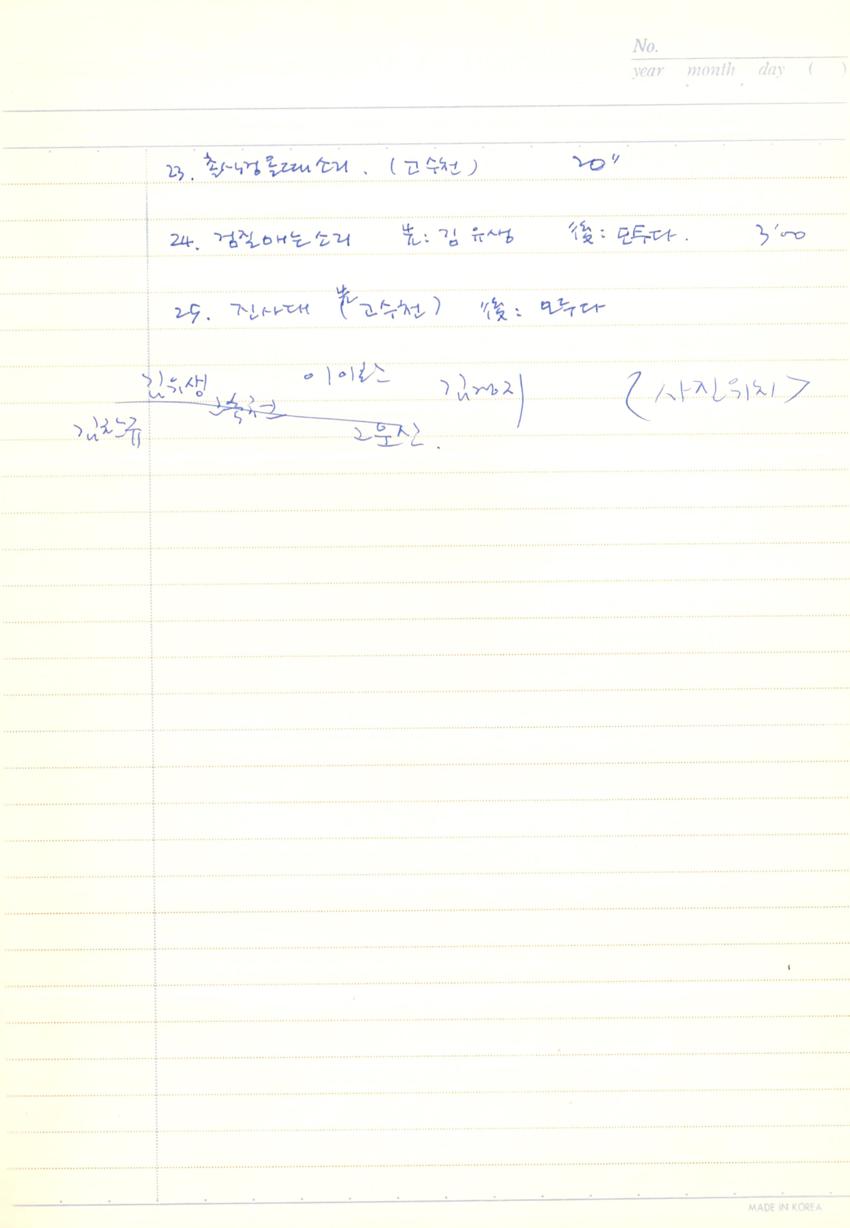 No.
year month day ( )
23. 밭시경몰때소리. (고수천) 20"
24. 검질매는소리 先: 김유생 後: 모두다. 3'00
25. 진사대 (先 고수천) 後: 모두다
김유생 <사진위치>
고운산.
MADE IN KOREA